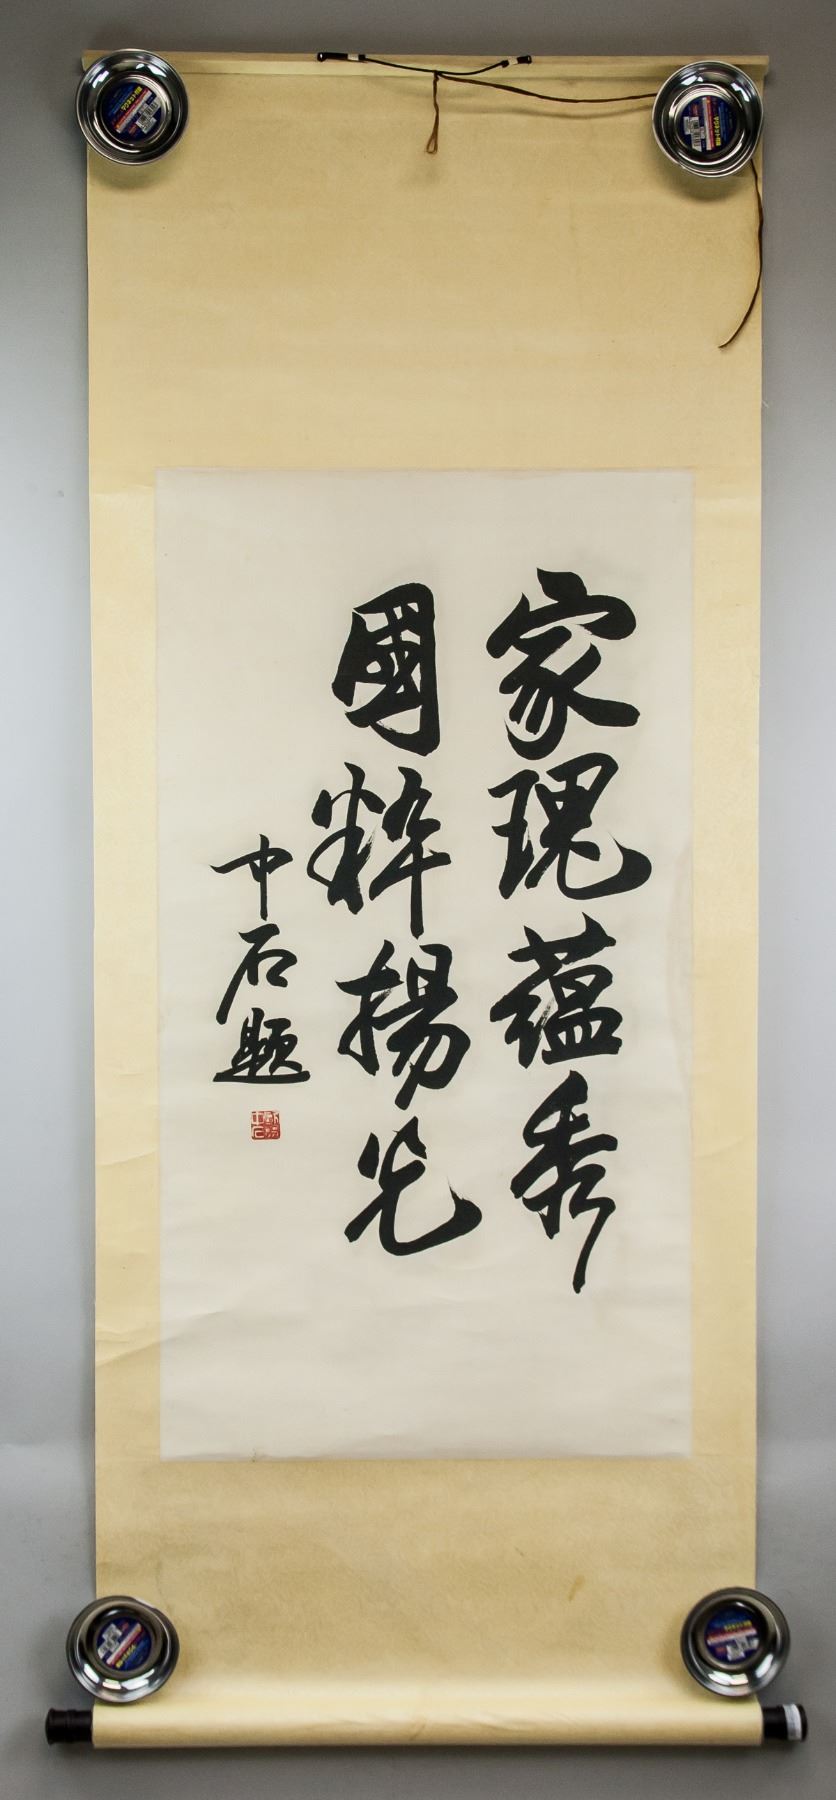 家瑰蕴秀
國粹揚光
中石題